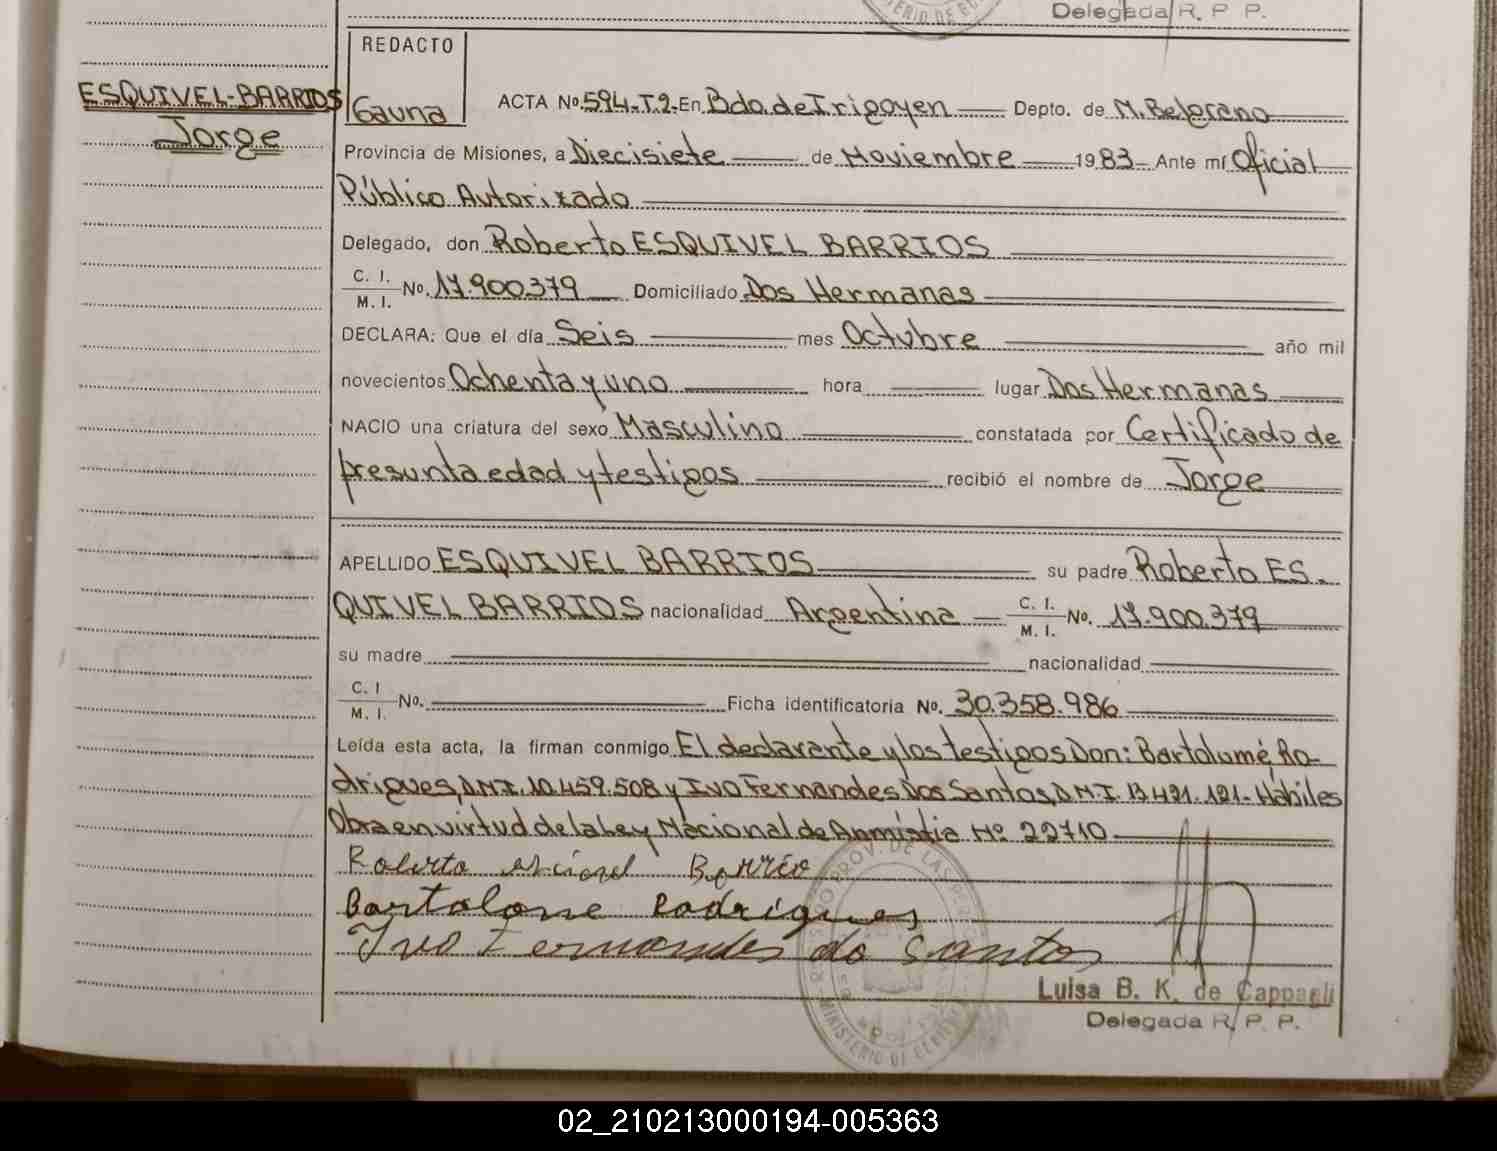 Delegada R. P. P.
REDACTO
ESQUIVEL-BARRIOS
Jorge
Gauna
ACTA Nº 594-T.2-En Bdo. de Irigoyen Depto. de M. Belgrano
Provincia de Misiones, a Diecisiete de Noviembre 1983 Ante mí Oficial
Público Autorizado
Delegado, don Roberto ESQUIVEL BARRIOS
C. I.
M. I. No. 17.900.379 Domiciliado Dos Hermanas
DECLARA: Que el día Seis mes Octubre año mil
novecientos Ochenta y uno hora lugar Dos Hermanas
NACIO una criatura del sexo Masculino constatada por Certificado de
presunta edad y testigos recibió el nombre de Jorge
APELLIDO ESQUIVEL BARRIOS su padre Roberto ES-
QUIVEL BARRIOS nacionalidad Argentina C. I.
M. I. No. 17.900.379
su madre nacionalidad
C. I
M. I. No. Ficha identificatoria No. 30.358.986
Leída esta acta, la firman conmigo El declarante y los testigos Don: Bartolomé Ro-
drigues, D.N.I. 10.459.508 y Ivo Fernandes Dos Santos, D.N.I. 13.421.121.- Hábiles
Obra en virtud de la Ley Nacional de Anmistia Nº 22710
Roberto Barrio
Bartolome Rodrigues
Ivo Fernandes do Santos
Luisa B. K. de Cappagli
Delegada R. P. P.
02_210213000194-005363